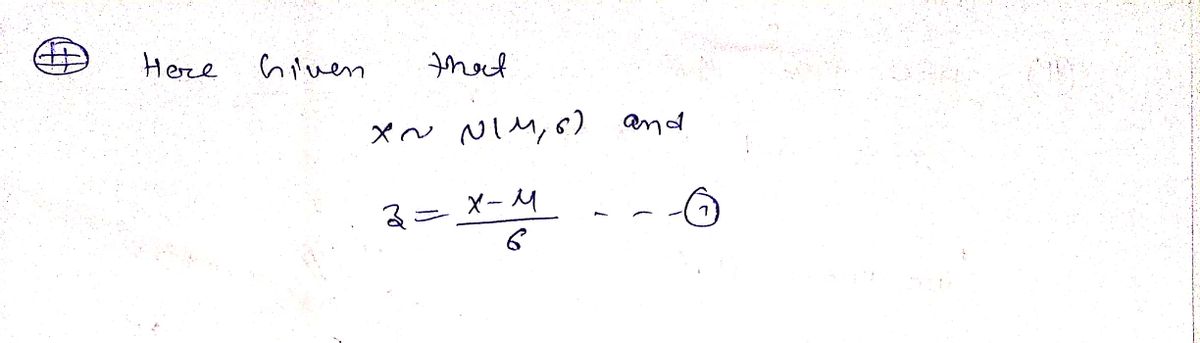 # Here Given that
X ~ N(μ, σ) and
z = (X - μ) / σ - - - ①